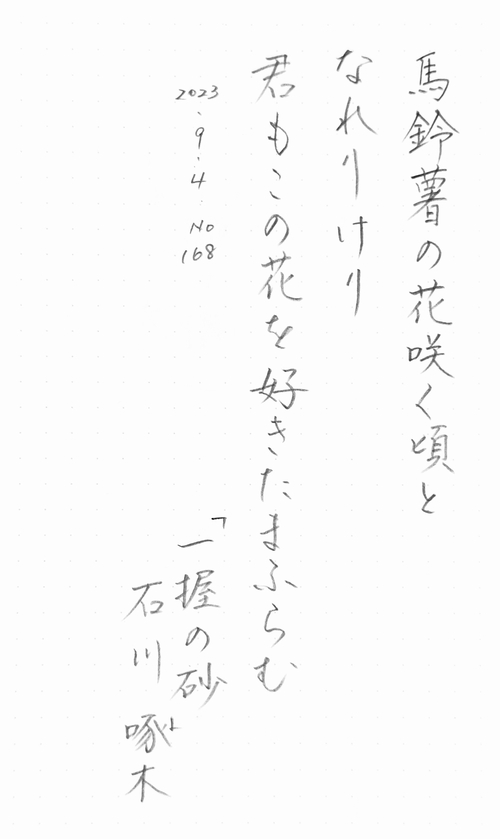 馬鈴薯の花咲く頃と
なれりけり
君もこの花を好きたまふらむ
2023.9.4 No168
「一握の砂」
石川啄木